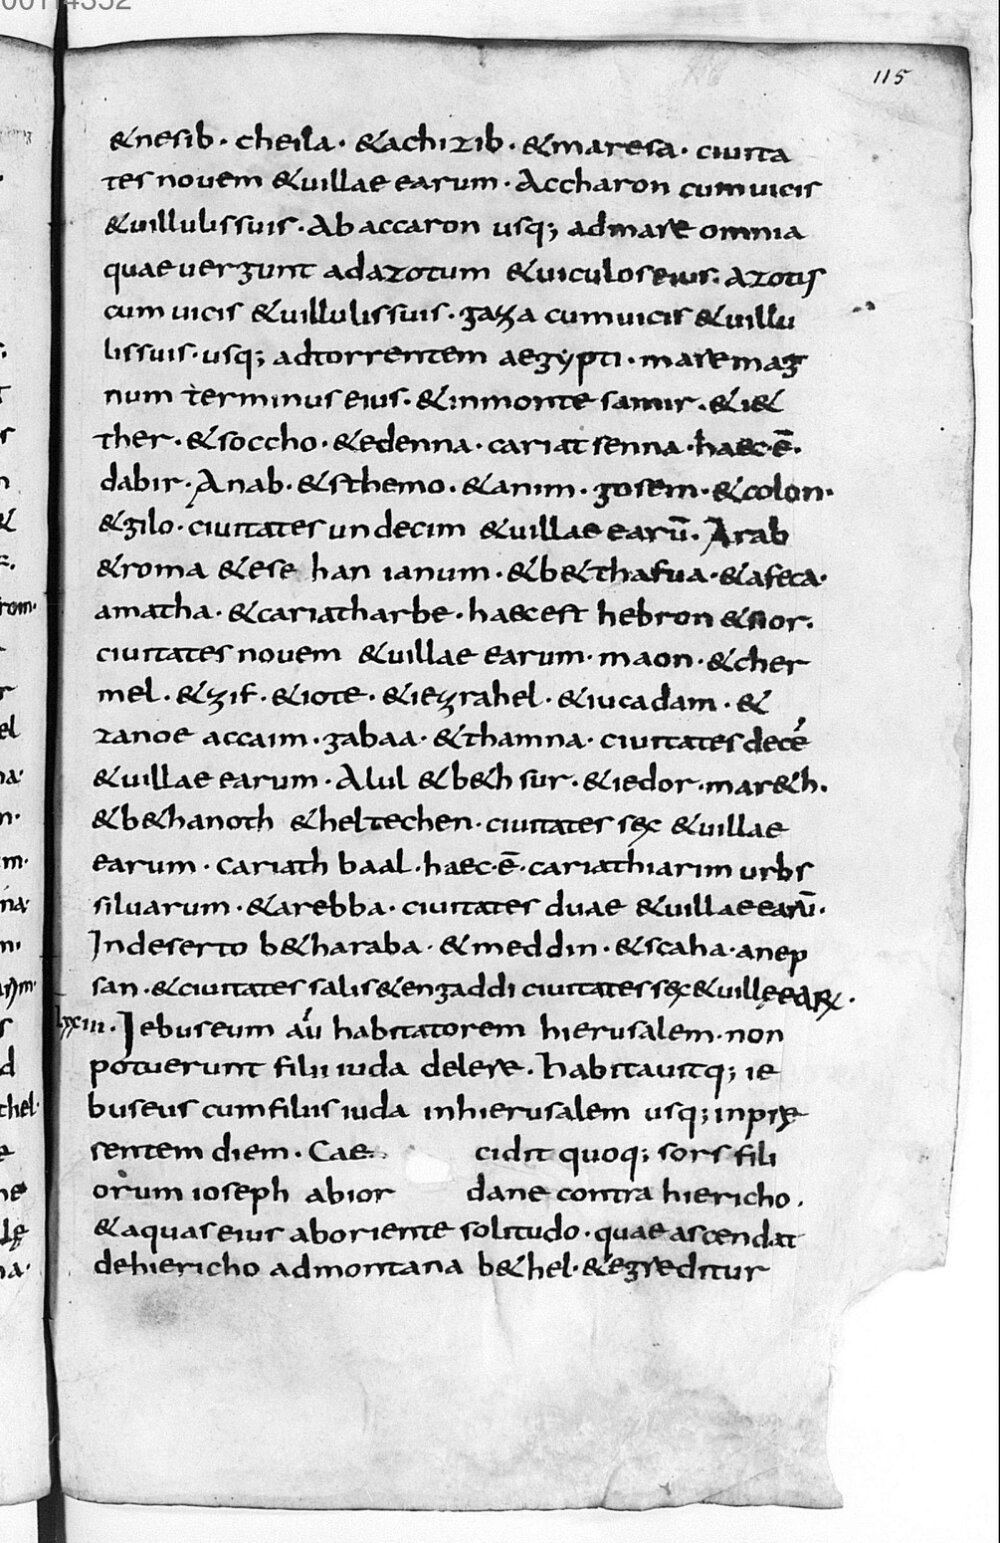 115
&nesib · cheila · &achizib · &maresa · ciuita
tes nouem &uillae earum · Accharon cum uicis
&uillulis suis · Ab accaron usq; ad mare omnia
quae uergunt ad azotum &uiculos eius · azotus
cum uicis &uillulis suis · gaza cum uicis &uillu
lis suis · usq; ad torrentem aegypti · mare mag
num terminus eius · &in monte samir · &i&
ther · &soccho · &edenna · cariat senna · haec · ē ·
dabir · Anab · &isthemo · &anim · gosem · &colon ·
&gilo · ciuitates undecim &uillae earū · Arab
&roma &ese han ianum · &b&thafua · &afeca ·
amatha · &cariatharbe · haec est hebron &sior ·
ciuitates nouem &uillae earum · maon · &cher
mel · &zif · &iote · &iezrahel · &iucadam · &
zanoe accaim · gabaa · &thamna · ciuitates decē
&uillae earum · Alul &b&h sur · &iedor · mar&h ·
&b&hanoth &heltechen · ciuitates sex &uillae
earum · Cariath baal · haec · ē · cariathiarim urbs
siluarum · &arebba · ciuitates duae &uillae earū ·
In deserto b&haraba · &meddin · &scaha · anep
san · &ciuitates salis &engaddi ciuitates sex &uillę earꝝ ·
lxxiii · Iebuseum aū habitatorem hierusalem · non
potuerunt filii iuda delere · habitauitq; ie
buseus cum filiis iuda in hierusalem usq; in prę
sentem diem · Cae cidit quoq; sors fili
orum ioseph ab ior dane contra hiericho ·
&aquas eius ab oriente solitudo · quae ascendat
de hiericho ad montana b&hel · &egreditur